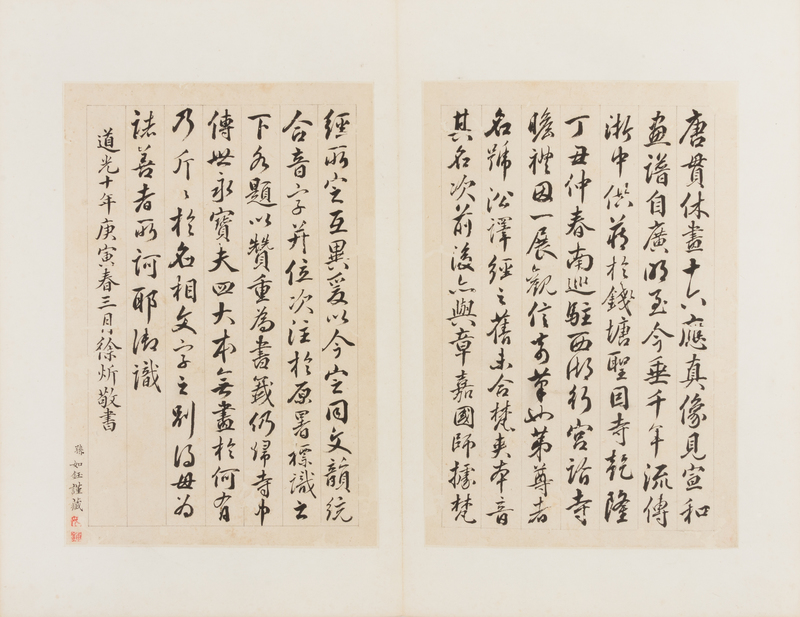 唐貫休畫十六應真像見宣和
畫譜自廣明至今垂千年流傳
浙中供藏於錢塘聖因寺乾隆
丁丑仲春南巡駐西湖行宮詣寺
瞻禮因一展觀信奇筆也第尊者
名號沿譯經之舊未合梵夾本音
其名次前後亦與章嘉國師據梵
經所定互異爰以今定同文韻統
合音字并位次注於原署標識之
下各題以贊重為書籤仍歸寺中
傳世永寶夫四大本無畫於何有
乃斤斤於名相文字之別得毋為
諸善者所訶耶御識
道光十年庚寅春三月徐炘敬書
孫如鈺謹藏